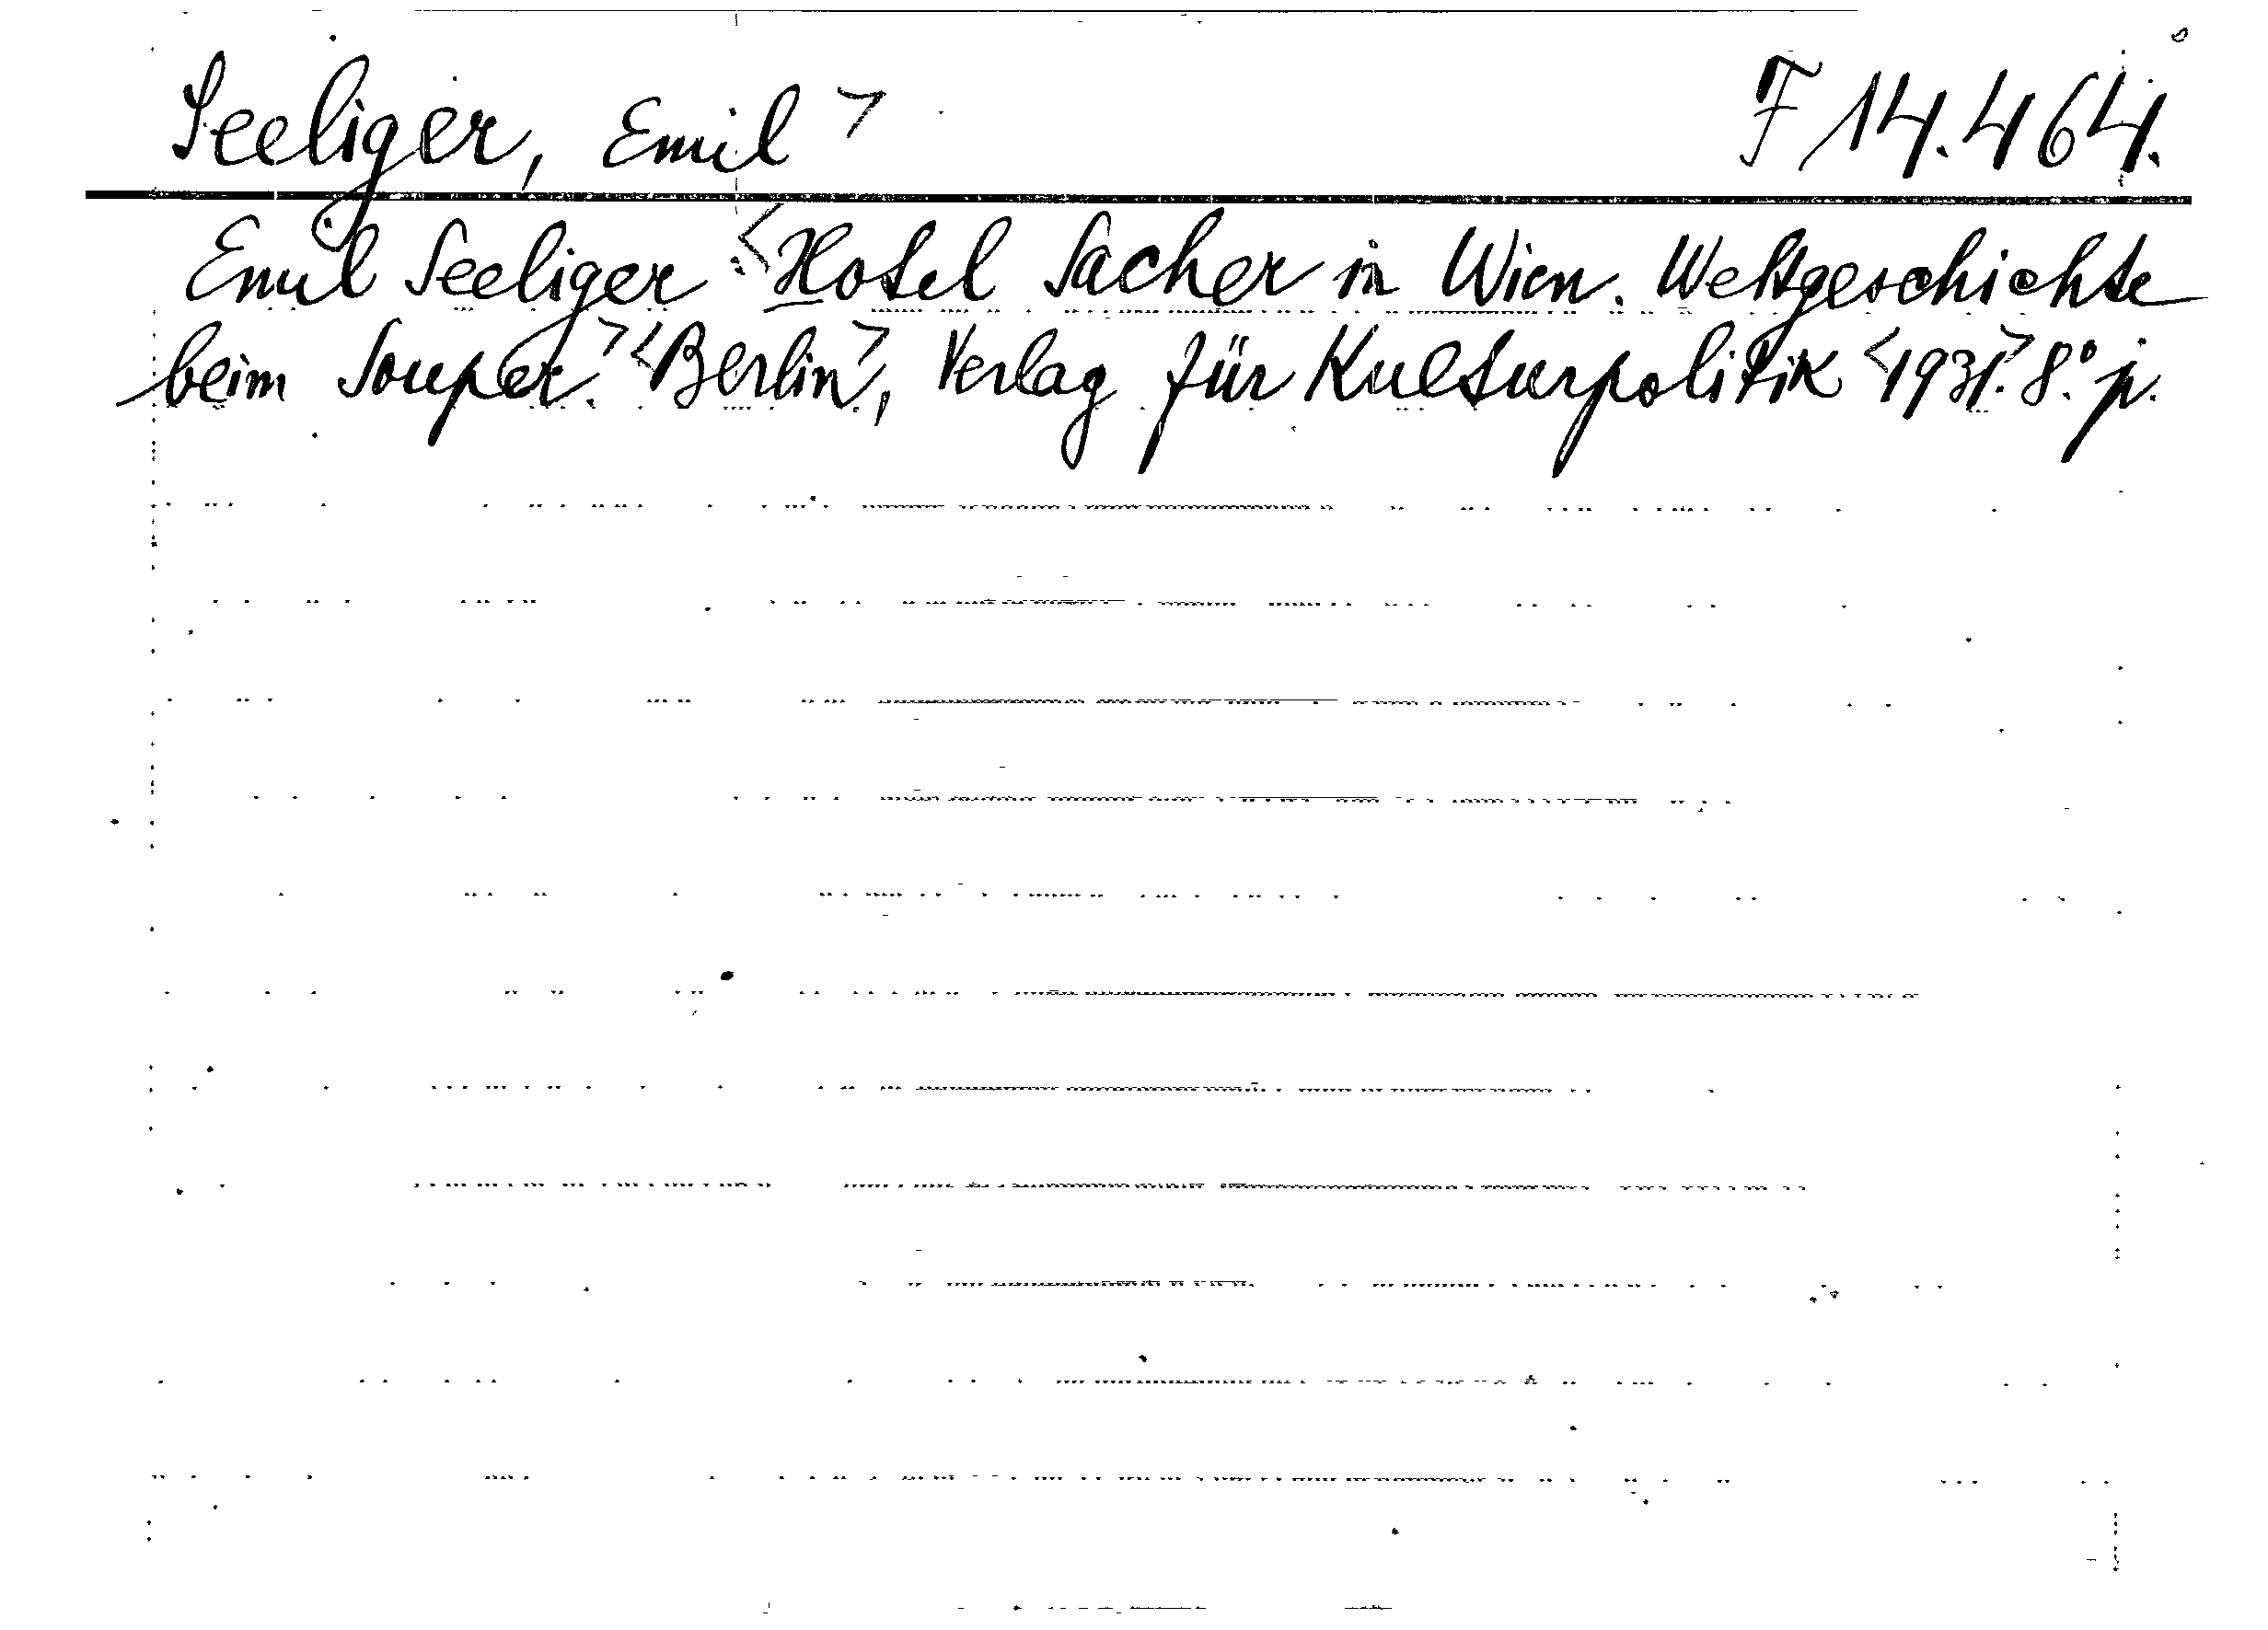 Seeliger, Emil> F 14.464.
Emil Seeliger: <Hotel Sacher in Wien. Weltgeschichte
beim Souper.> <Berlin>, Verlag für Kulturpolitik <1931>. 8.° p.